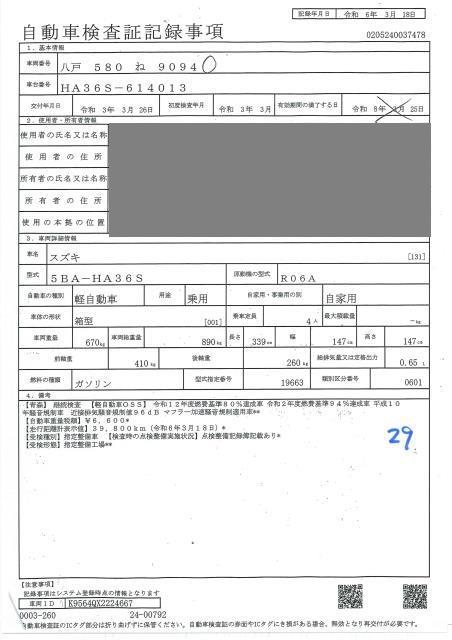 記録年月日 令和 6年 3月 18日
自動車検査証記録事項
0205240037478
1. 基本情報
車両番号 八戸 580 ね 9094
車台番号 HA36S-614013
交付年月日 令和 3年 3月 26日 初度検査年月 令和 3年 3月 有効期間の満了する日 令和 8年 3月 25日
2. 使用者・所有者情報
使用者の氏名又は名称
使用者の住所
所有者の氏名又は名称
所有者の住所
使用の本拠の位置
3. 車両詳細情報
車名 スズキ [131]
型式 5BA-HA36S 原動機の型式 R06A
自動車の種別 軽自動車 用途 乗用 自家用・事業用の別 自家用
車体の形状 箱型 [001] 乗車定員 4人 最大積載量 -kg
車両重量 670kg 車両総重量 890kg 長さ 339cm 幅 147cm 高さ 147cm
前軸重 410kg 後軸重 260kg 総排気量又は定格出力 0.65 L
燃料の種類 ガソリン 型式指定番号 19663 類別区分番号 0601
4. 備考
【青森】 継続検査 【軽自動車OSS】 令和12年度燃費基準80%達成車 令和2年度燃費基準94%達成車 平成10
年騒音規制車 近接排気騒音規制値96dB マフラー加速騒音規制適用車**
【自動車重量税額】¥6,600*
【走行距離計表示値】39,800km(令和6年3月18日)*
【受検種別】指定整備車 【検査時の点検整備実施状況】点検整備記録簿記載あり*
【受検形態】指定整備工場**
29
【注意事項】
記録事項はシステム登録時点の情報となります
車両ID K9564QX2224667
0003-260 24-00792
自動車検査証のICタグ部分は折り曲げずに保管ください。自動車検査証の券面やICタグにき損がある場合、無効となり再交付が必要です。